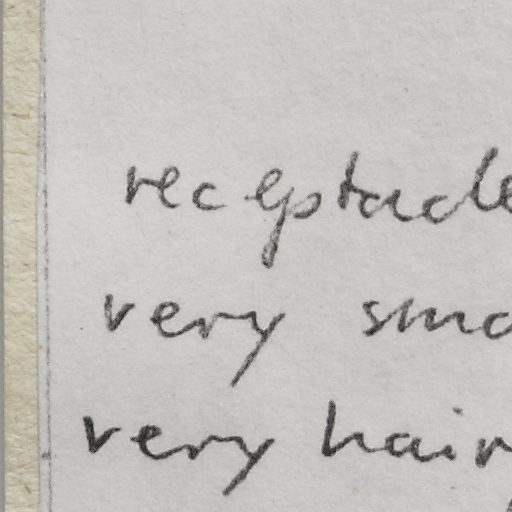 receptacle
very sma
very hair